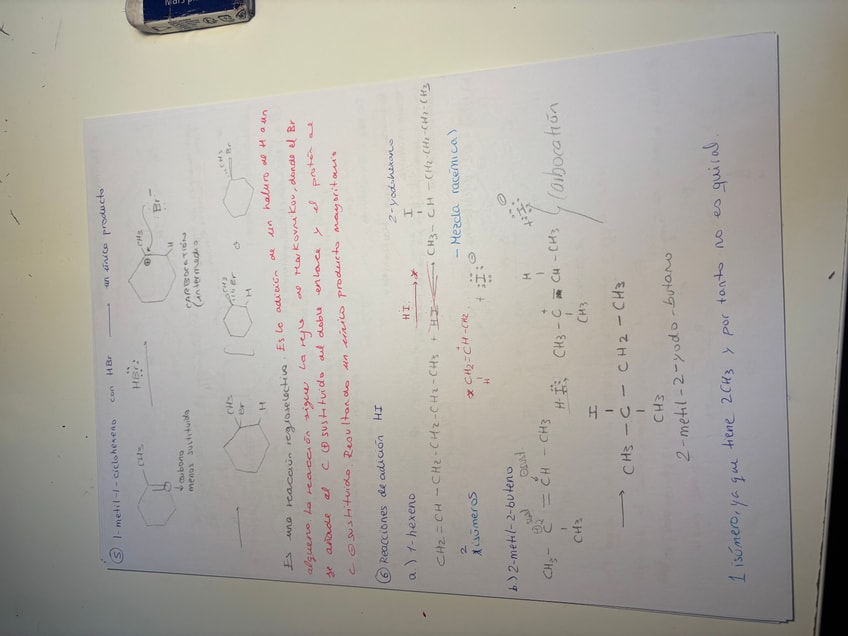 ⑤ 1-metil-1-ciclohexeno con HBr → un único producto
CH3
HBr
CH3
Br⁻
H
↓ carbono
menos sustituido
CARBOCATIÓN
(intermedio)
CH3
Br
H
CH3
Br
H
o
CH3
Br
Es una reacción regioselectiva. Es la adición de un haluro de H a un
alqueno. La reacción sigue la regla de Markovnikov, donde el Br
se añade al C ⊕ sustituido del doble enlace y el protón al
C ⊖ sustituido. Resultando un único producto mayoritario
⑥ Reacciones de adición HI
a) 1-hexeno
2-yodohexano
CH2=CH-CH2-CH2-CH2-CH3 + HI → CH3-CH-CH2-CH2-CH2-CH3
HI
I
2
isómeros
CH2=CH-CH2
H
+ I ⊖
- Mezcla racémica)
b) 2-metil-2-buteno
CH3-C=CH-CH3
CH3
HI
CH3-C-CH-CH3
+
H
CH3
+ I ⊖
→ CH3-C-CH2-CH3
I
CH3
2-metil-2-yodo-butano
1 isómero, ya que tiene 2CH3 y por tanto no es quiral.